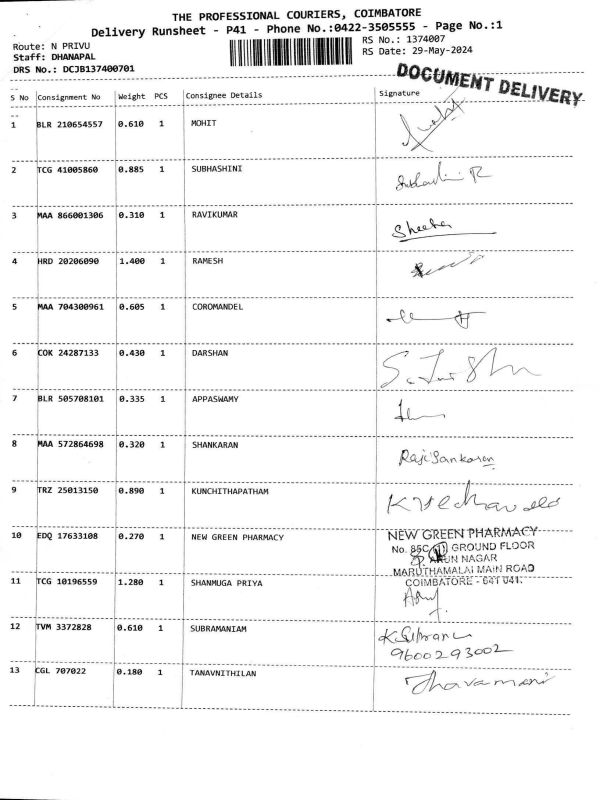 THE PROFESSIONAL COURIERS, COIMBATORE
Delivery Runsheet - P41 - Phone No.:0422-3505555 - Page No.:1
Route: N PRIVU
RS No.: 1374007
Staff: DHANAPAL
RS Date: 29-May-2024
DRS No.: DCJB137400701
DOCUMENT DELIVERY
S No Consignment No Weight PCS Consignee Details Signature
1 BLR 210654557 0.610 1 MOHIT
2 TCG 41005860 0.885 1 SUBHASHINI
3 MAA 866001306 0.310 1 RAVIKUMAR
4 HRD 20206090 1.400 1 RAMESH
5 MAA 704300961 0.605 1 COROMANDEL
6 COK 24287133 0.430 1 DARSHAN
7 BLR 505708101 0.335 1 APPASWAMY
8 MAA 572864698 0.320 1 SHANKARAN Raji Sankaran
9 TRZ 25013150 0.890 1 KUNCHITHAPATHAM
10 EDQ 17633108 0.270 1 NEW GREEN PHARMACY
NEW GREEN PHARMACY
No. 85C GROUND FLOOR
ARUN NAGAR
MARUTHAMALAI MAIN ROAD
COIMBATORE - 641 041.
11 TCG 10196559 1.280 1 SHANMUGA PRIYA
12 TVM 3372828 0.610 1 SUBRAMANIAM
9600293002
13 CGL 707022 0.180 1 TANAVNITHILAN Thavamani